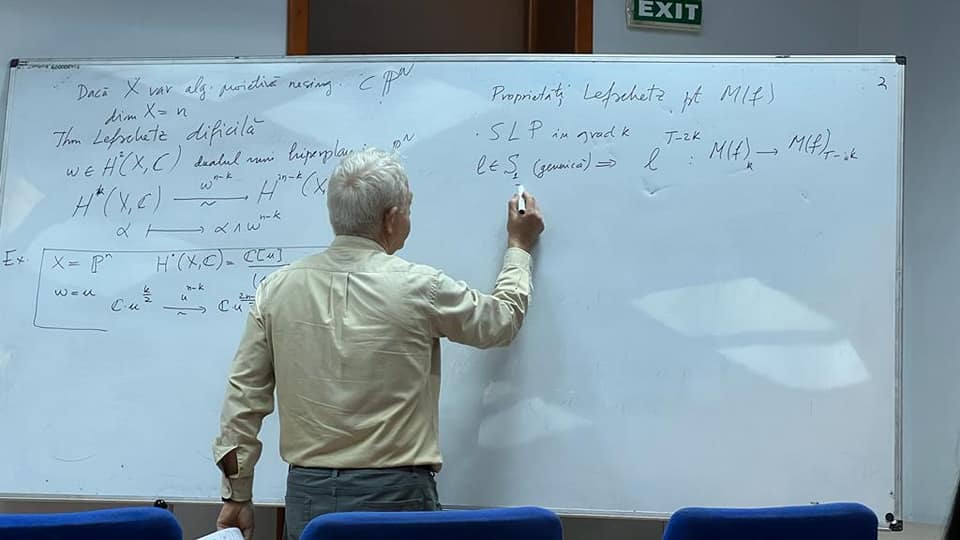 EXIT
Dacă X var alg. proiectivă nesing. ⊂ ℙᴺ
dim X = n
Thm Lefschetz dificilă
w ∈ H²(X, ℂ) dualul unui hiperplan ℙᴺ
Hᵏ(X, ℂ) —wⁿ⁻ᵏ→ ~ H²ⁿ⁻ᵏ(X,
α ⟼ α ∧ wⁿ⁻ᵏ
Ex.
X = ℙⁿ H˙(X, ℂ) = ℂ[u]
w = u ℂ·u^(k/2) —uⁿ⁻ᵏ→ ~ ℂu
2
Proprietăți Lefschetz pt M(f)
· SLP in grad k
ℓ ∈ S₁ (generică) ⇒ ℓ^(T-2k) : M(f)ₖ → M(f)